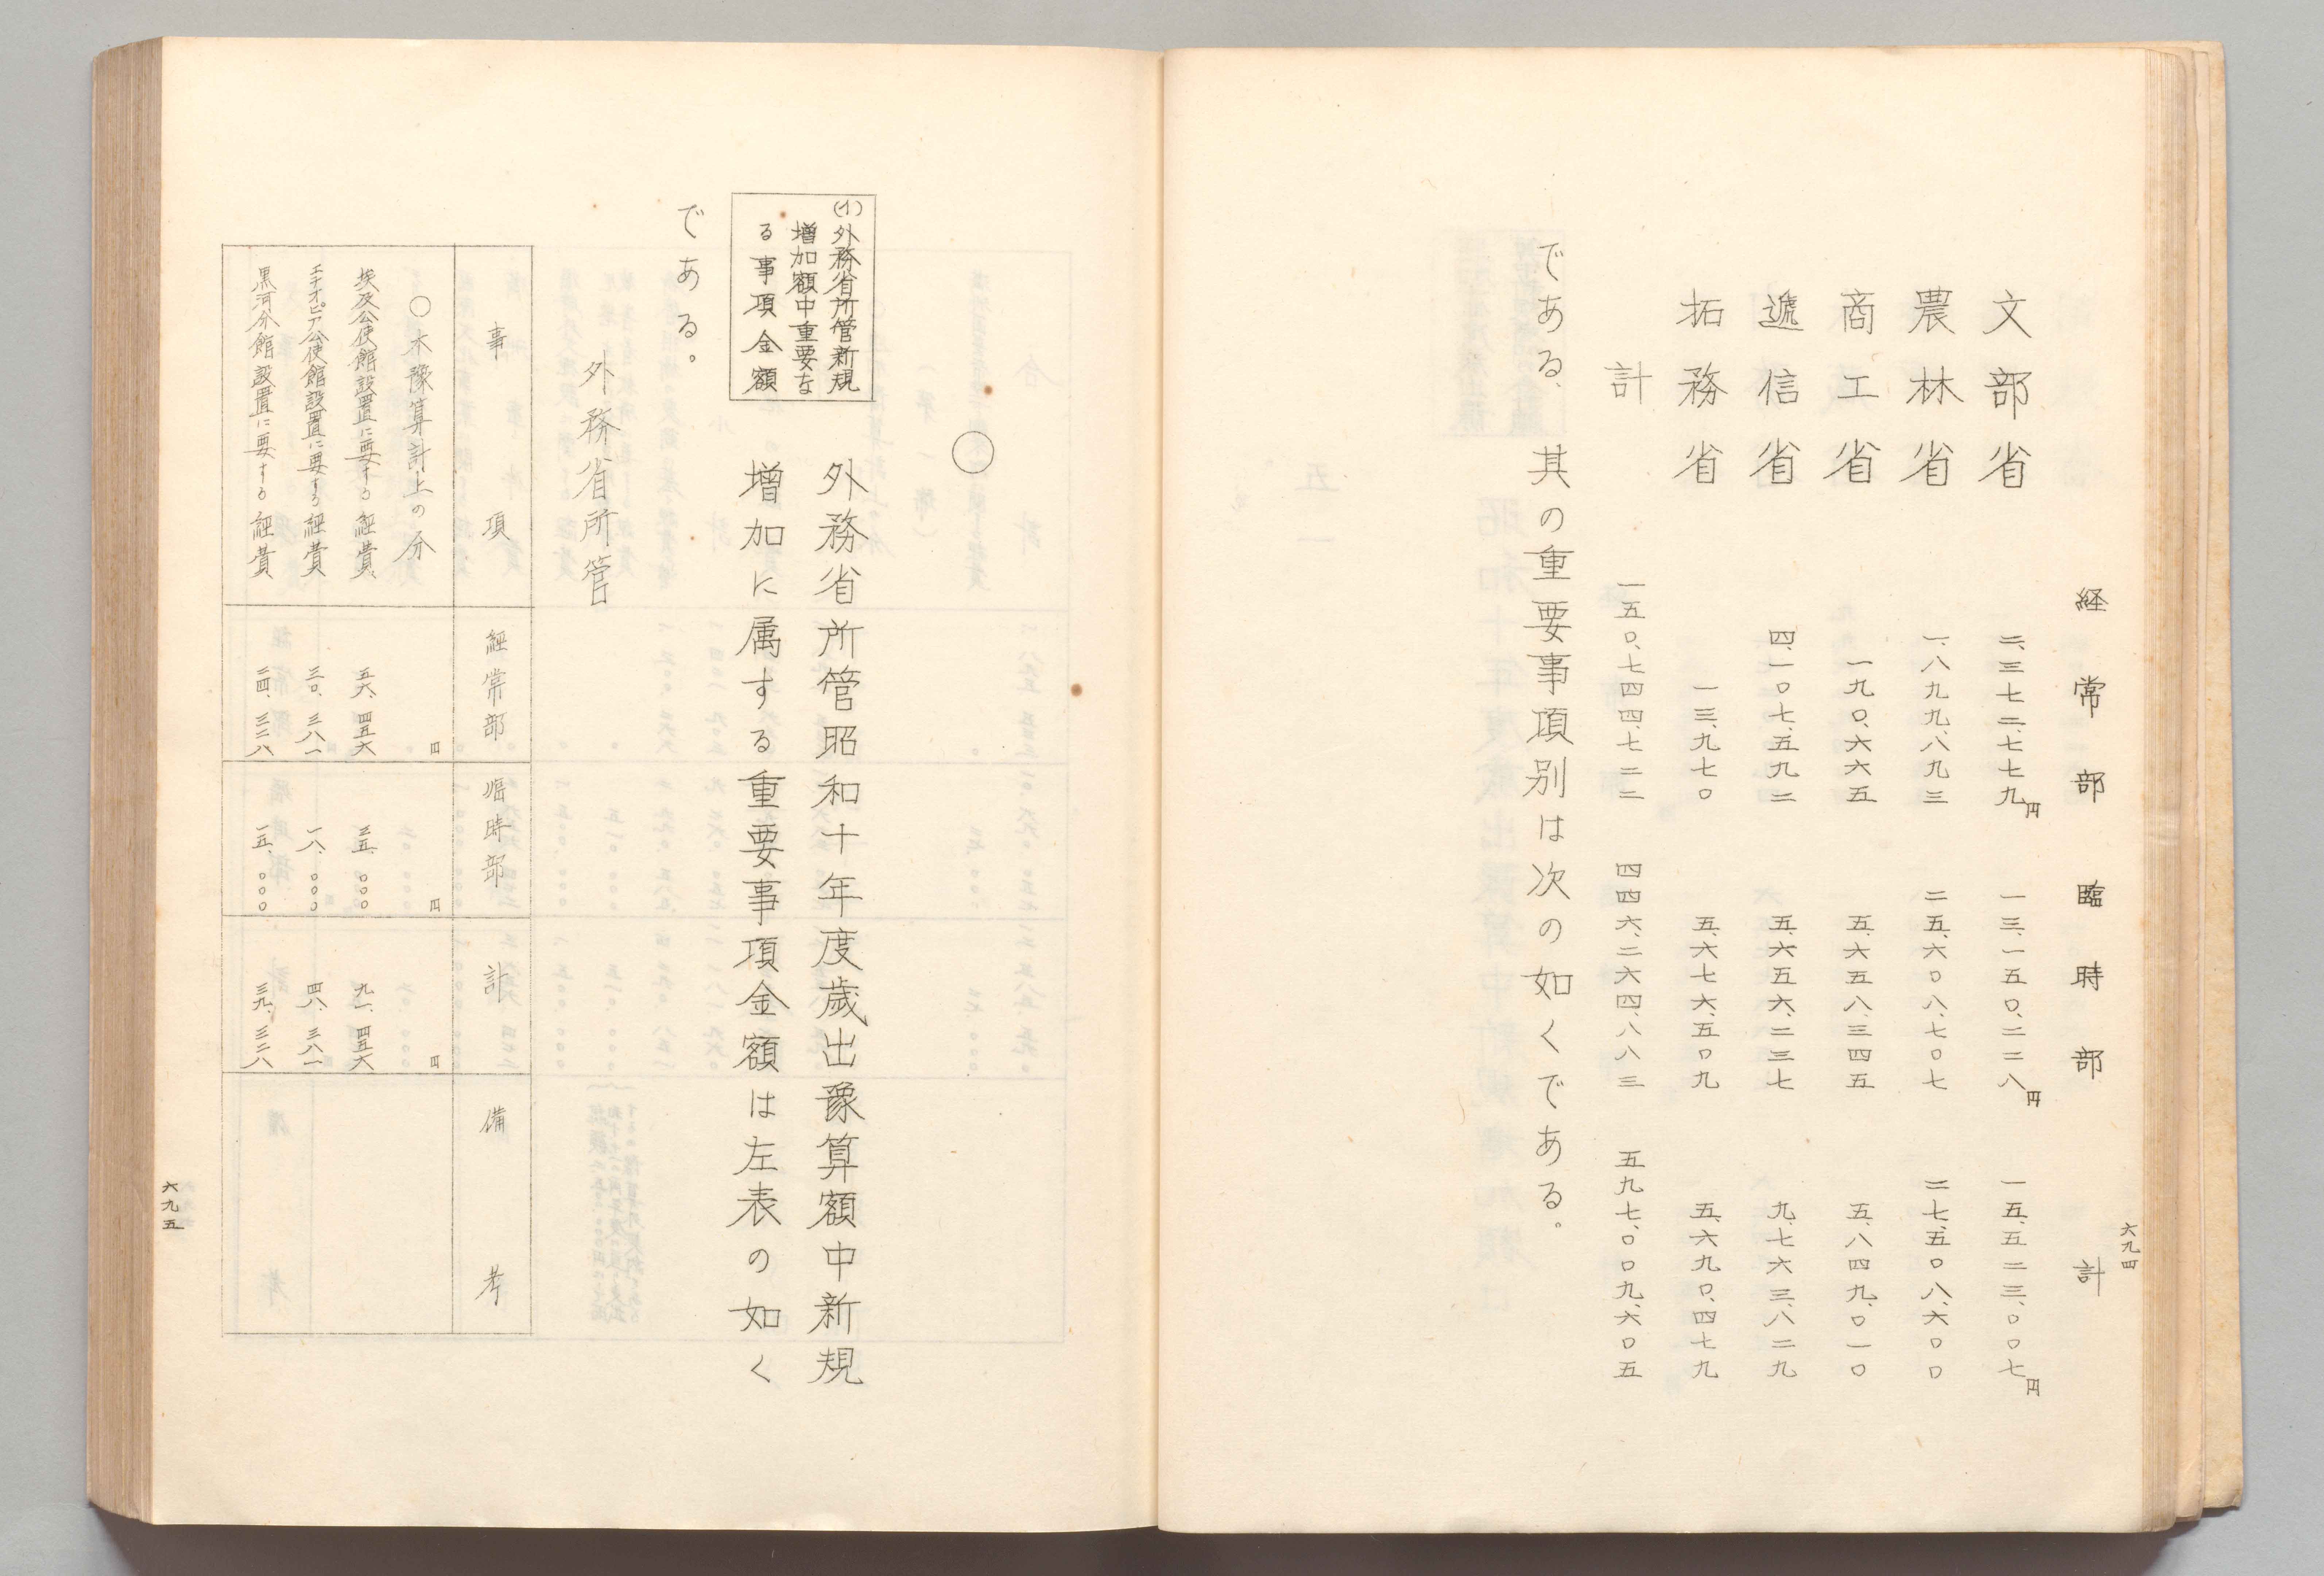 六九四
経常部 臨時部 計
文部省 二、三七二、七七九円 一三、一五〇、二二八円 一五、五二三、〇〇七円
農林省 一、八九九、八九三 二五、六〇八、七〇七 二七、五〇八、六〇〇
商工省 一九〇、六六五 五、六五八、三四五 五、八四九、〇一〇
遞信省 四、一〇七、五九二 五、六五六、二三七 九、七六三、八二九
拓務省 一三、九七〇 五、六七六、五〇九 五、六九〇、四七九
計 一五〇、七四四、七二二 四四六、二六四、八八三 五九七、〇〇九、六〇五
である、其の重要事項別は次の如くである。
〇
(イ)外務省所管新規
増加額中重要な
る事項金額
外務省所管昭和十年度歳出豫算額中新規
増加に属する重要事項金額は左表の如く
である。
外務省所管
事項 經常部 臨時部 計 備考
〇本豫算計上の分 円 円 円
埃及公使館設置に要する經費 五六、四五六 三五、〇〇〇 九一、四五六
エチオピア公使館設置に要する經費 三〇、三八一 一八、〇〇〇 四八、三八一
黒河分館設置に要する經費 二四、三二八 一五、〇〇〇 三九、三二八
六九五